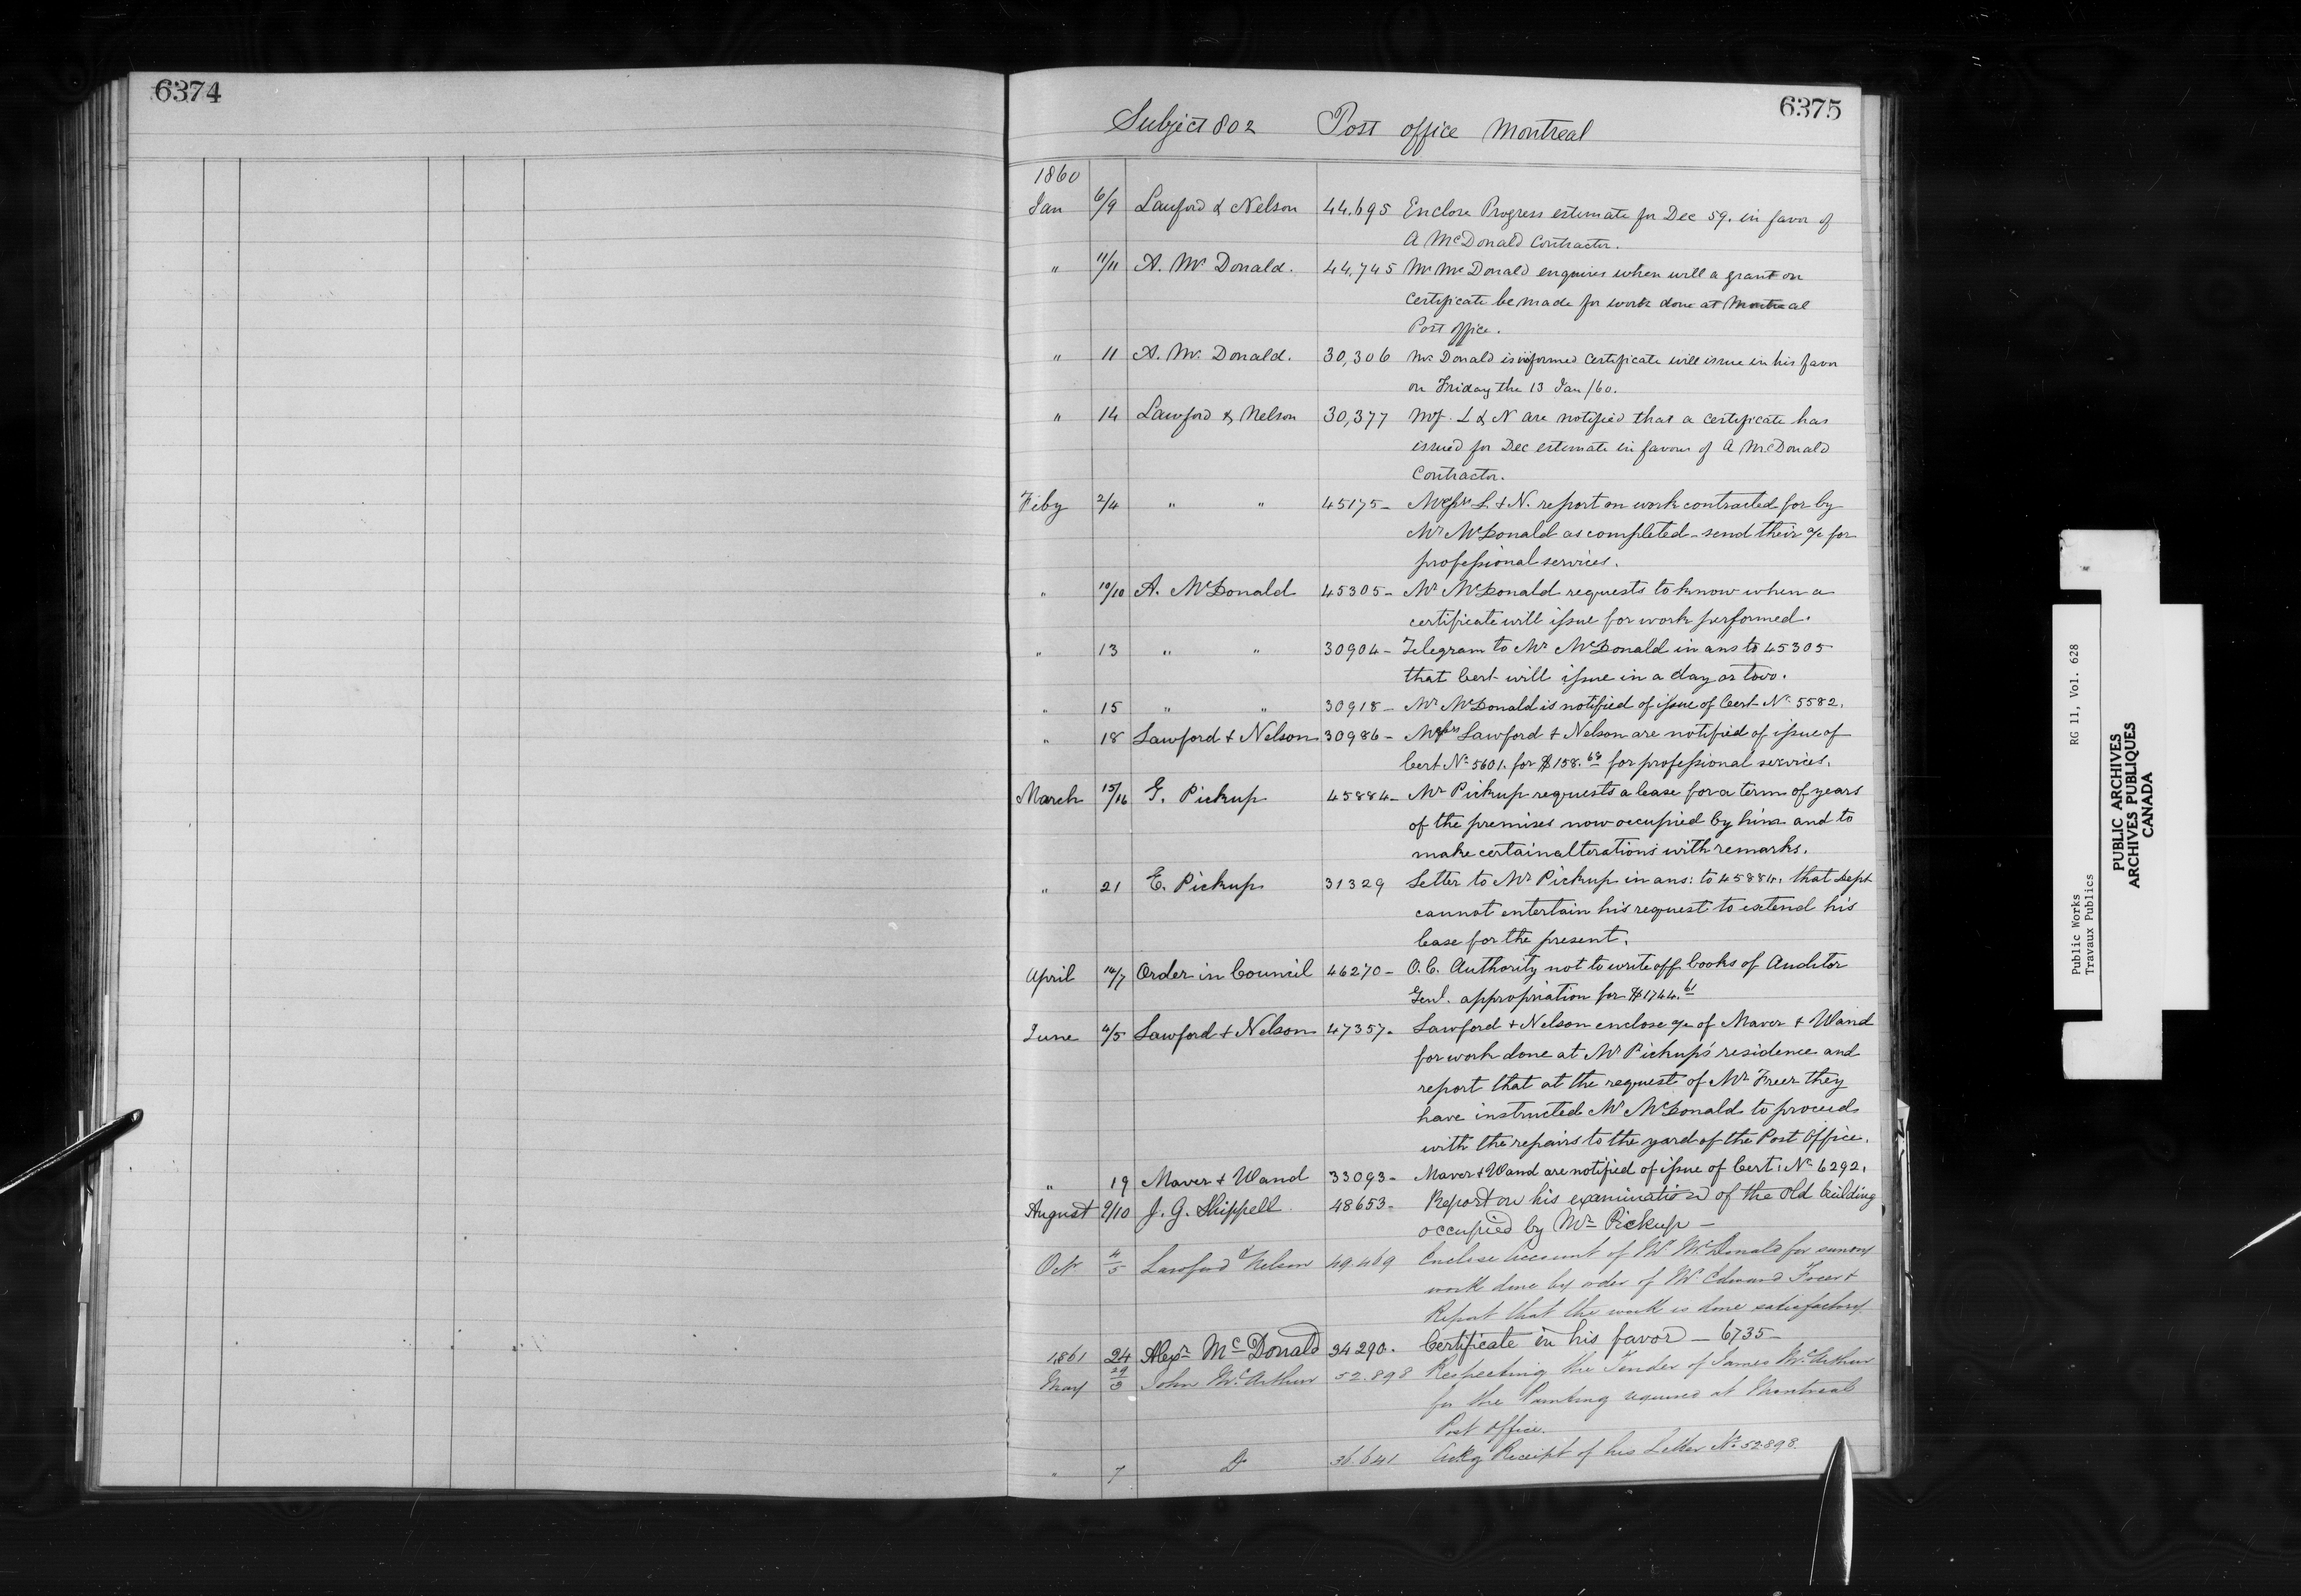 6374
6375
Subject 802 Post office Montreal
1860
Jan 6/9 Lawford & Nelson 44.695 Enclose Progress estimate for Dec 59. in favor of
A McDonald Contractor.
" 11/11 A. Mc Donald. 44,745 Mr McDonald enquires when will a grant on
certificate be made for work done at Montreal
Post office.
" 11 A. Mc Donald. 30,306 Mc Donald is informed certificate will issue in his favor
on Friday the 13 Jan /60.
" 14 Lawford & Nelson 30,377 L & N are notified that a certificate has
issued for Dec estimate in favour of A McDonald
Contractor.
Feby 2/4 " " 45175- Messrs L. & N. report on work contracted for by
Mr McDonald as completed - send their a/c for
professional services.
" 10/10 A. McDonald 45305- Mr McDonald requests to know when a
certificate will issue for work performed.
" 13 " " 30904- Telegram to Mr McDonald in ans to 45305
that Cert will issue in a day or two.
" 15 " " 30918- Mr McDonald is notified of issue of Cert No 5582.
" 18 Lawford & Nelson 30986- Messrs Lawford & Nelson are notified of issue of
Cert No 5601. for $158. for professional services.
March 15/16 G. Pickup 45884- Mr Pickup requests a lease for a term of years
of the premises now occupied by him and to
make certain alterations with remarks.
" 21 E. Pickup 31329 Letter to Mr Pickup in ans: to 45884. that Dept
cannot entertain his request to extend his
lease for the present.
April /7 Order in Council 46270- O.C. Authority not to write off books of Auditor
Genl. appropriation for $1744.61
June 4/5 Lawford & Nelson 47357. Lawford & Nelson enclose a/c of Maver & Wand
for work done at Mr Pickup's residence and
report that at the request of Mr Freer they
have instructed Mr McDonald to proceed
with the repairs to the yard of the Post Office.
" 19 Maver & Wand 33093- Maver & Wand are notified of issue of Cert: No 6292.
August 9/10 J. G. Shippell 48653- Report on his examination of the old building
occupied by Mr Pickup -
Octr 4/5 Lawford & Nelson 49.469 Enclose Account of Mr McDonald for sundry
work done by oder of Mr Edward Freer &
Report that the work is done satisfactory
24 Alexr McDonald 34290. Certificate in his favor - 6735-
1861
May 29/3 John McArthur 52.898 Respecting the Tender of James McArthur
for the Painting required at Montreal
Post office.
" 7 Do 36.641 Ackg Receipt of his Letter No 52898.
Public Works RG 11, Vol. 628
Travaux Publics
PUBLIC ARCHIVES
ARCHIVES PUBLIQUES
CANADA